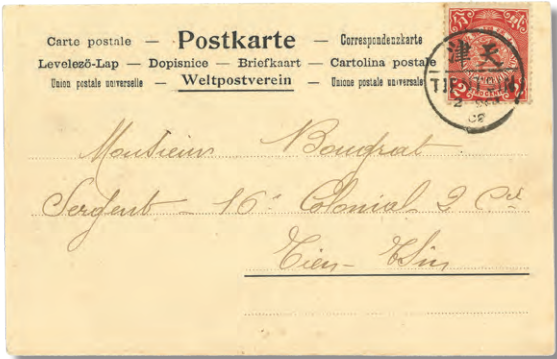 Carte postale — Postkarte — Correspondenzkarte
Levelező-Lap — Dopisnice — Briefkaart — Cartolina postale
Union postale universelle — Weltpostverein — Unione postale universale
津天
TIENTSIN
2
Monsieur Bougrat
Sergent - 16e Colonial 2 Cie
Tien-Tsin